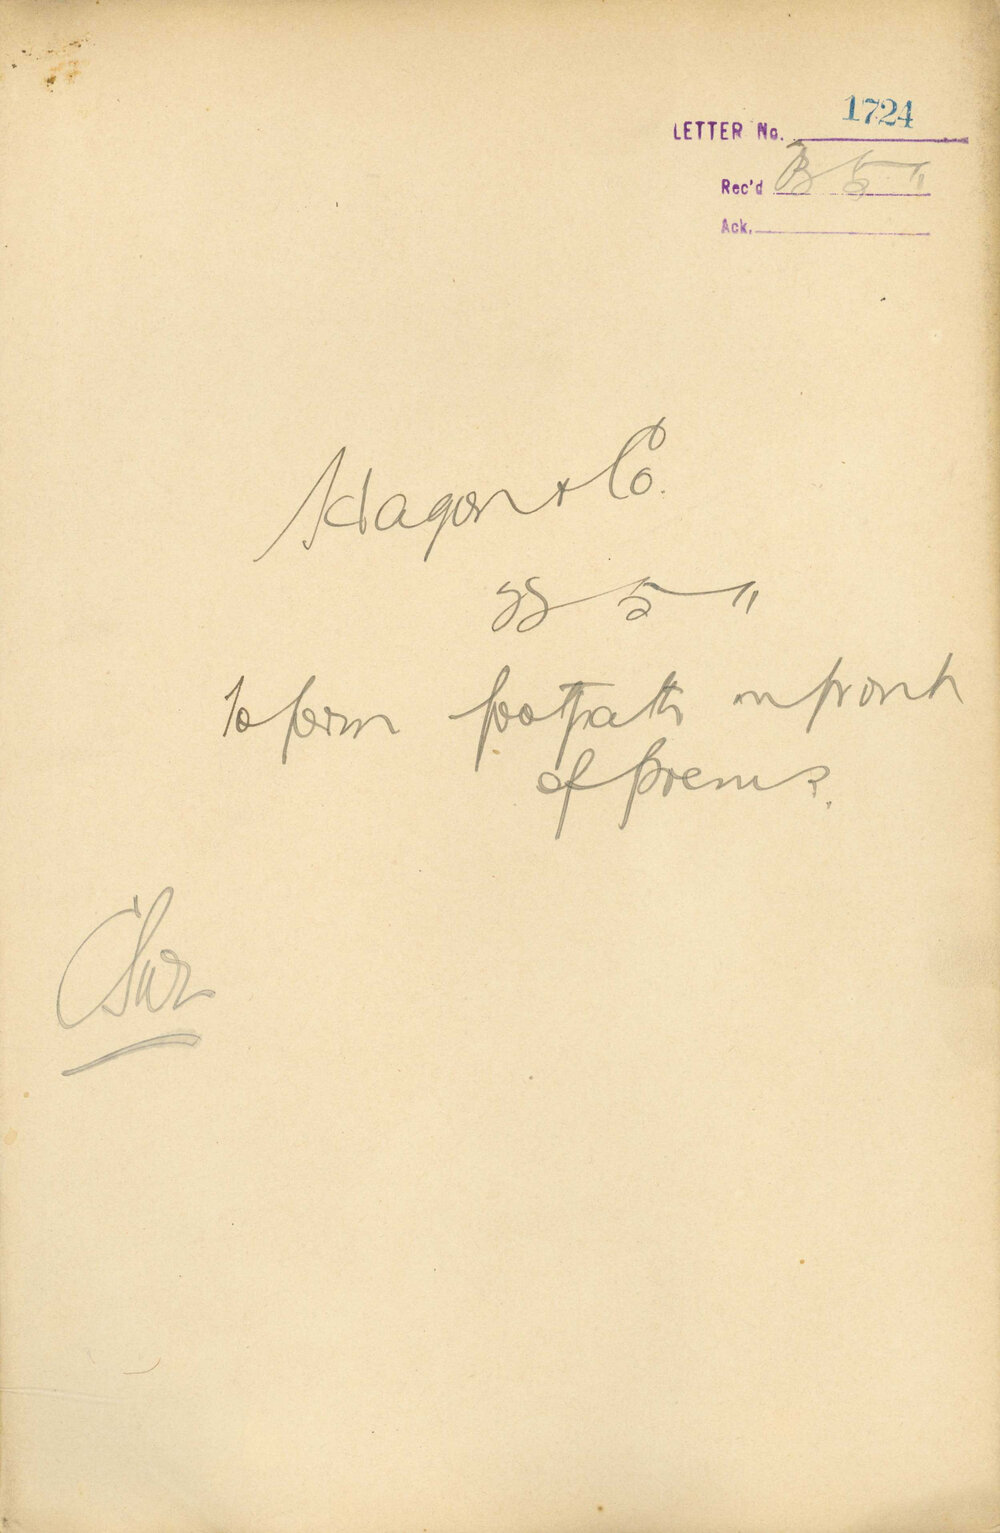 LETTER No. 1724
Rec'd 5 11
Ack.
& Co.
5 11
To form footpath in front
of prems.